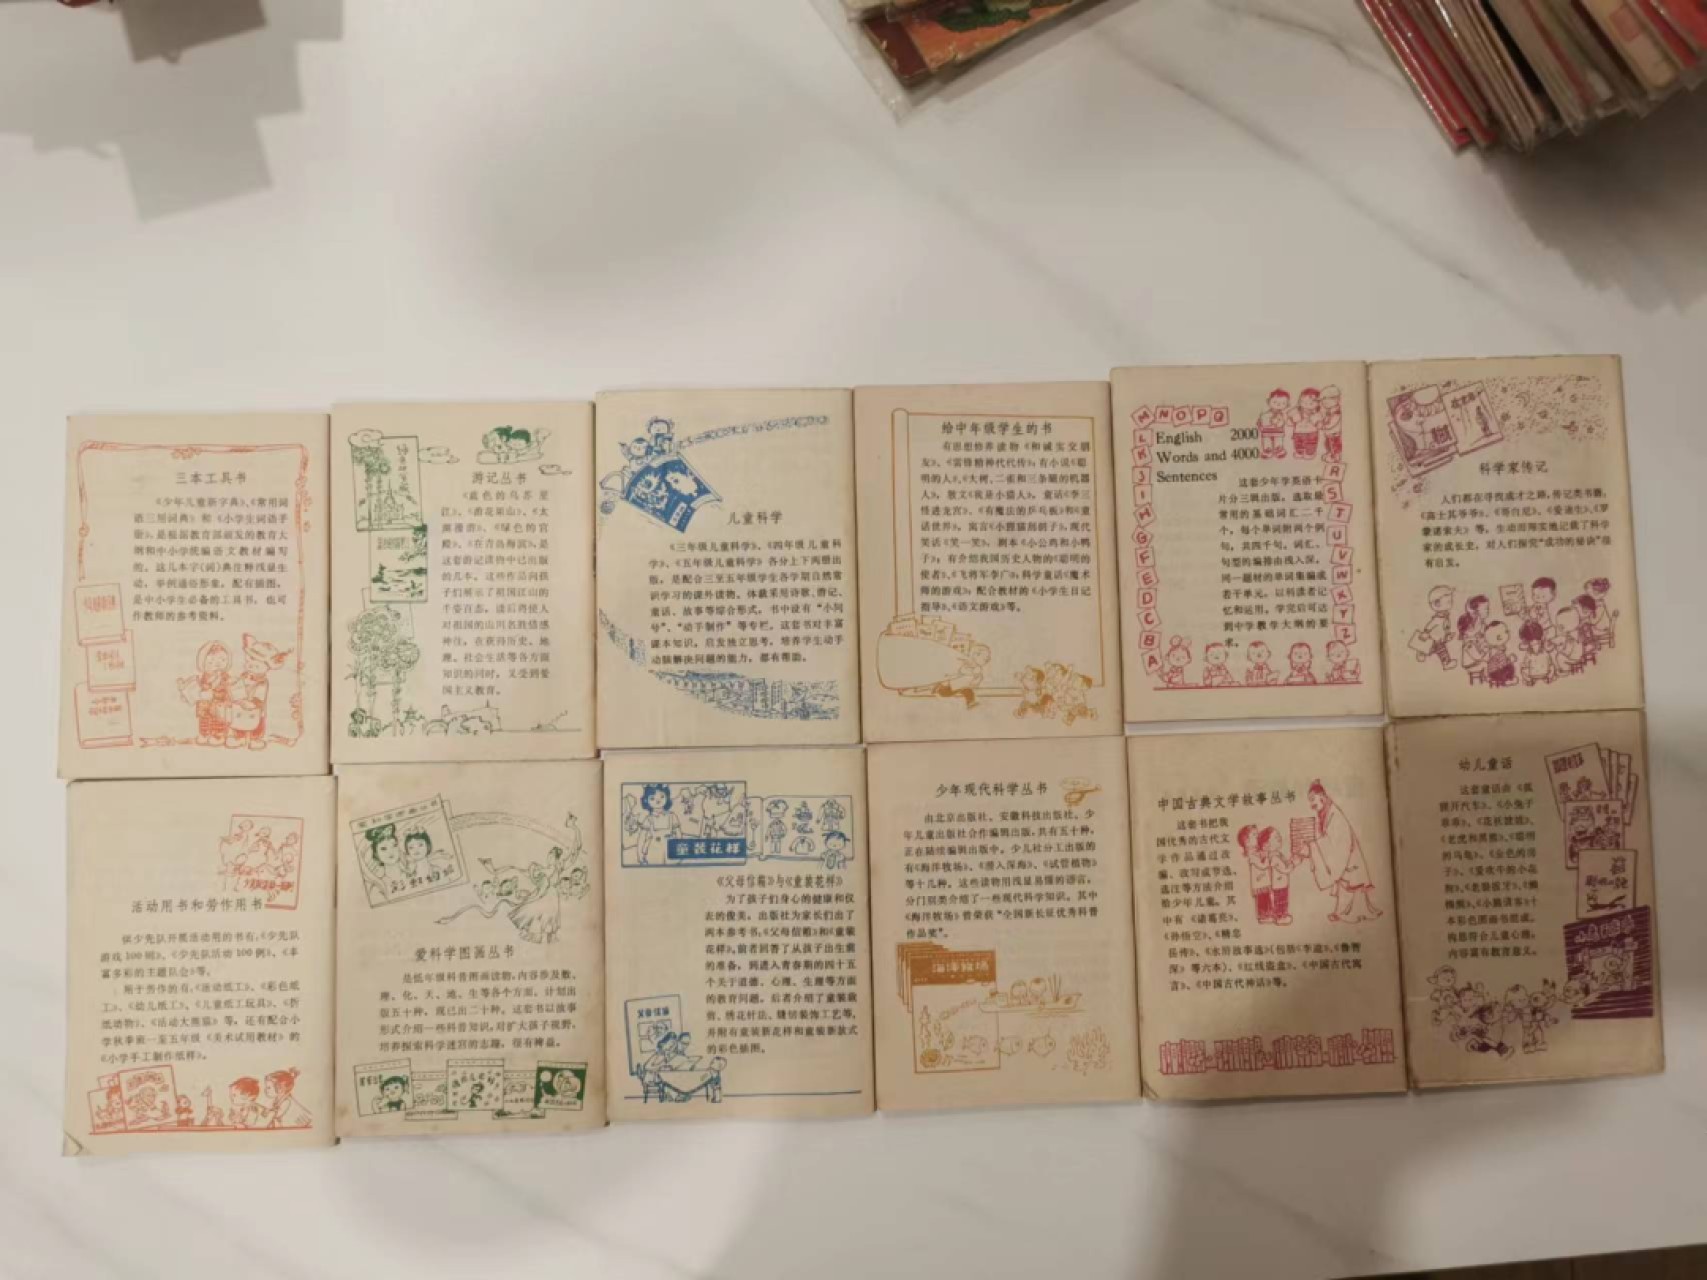 三本工具书
《少年儿童新字典》、《常用词
语三用词典》和《小学生词语手
册》,是根据教育部颁发的教育大
纲和中小学统编语文教材编写
的。这几本字(词)典注释浅显生
动,举例通俗形象,配有插图,
是中小学生必备的工具书,也可
作教师的参考资料。
游记丛书
《蓝色的乌苏里
江》、《游花果山》、《太
湖漫游》、《绿色的宫
殿》、《在青岛海滨》,是
这套游记读物中已出版
的几本。这些作品向孩
子们展示了祖国江山的
千姿百态,读后将使人
对祖国的山川名胜情感
神往,在获得历史、地
理、社会生活等各方面
知识的同时,又受到爱
国主义教育。
儿童科学
《三年级儿童科学》、《四年级儿童科
学》、《五年级儿童科学》各分上下两册出
版,是配合三至五年级学生各学期自然常
识学习的课外读物。体裁采用诗歌、游记、
童话、故事等综合形式,书中设有“小问
号”、“动手制作”等专栏。这套书对丰富
课本知识,启发独立思考,培养学生动手
动脑解决问题的能力,都有帮助。
给中年级学生的书
有思想修养读物《和诚实交朋
友》、《雷锋精神代代传》;有小说《聪
明的人》、《大树,二雀和三条腿的机器
人》,散文《我是小猎人》,童话《李三
怪进龙宫》、《有魔法的乒乓板》和《童
话世界》,寓言《小熊猫刮鹊子》,现代
笑话《笑一笑》,剧本《小公鸡和小鸭
子》;有介绍我国历史人物的《聪明的
使者》、《飞将军李广》;科学童话《魔术
师的游戏》;配合教材的《小学生日记
指导》、《语文游戏》等。
M N O P Q
L K J I H G F E D C B A
R S T U V W X Y Z
English 2000
Words and 4000
Sentences
这套少年学英语卡
片分三辑出版,选取最
常用的基础词汇二千
个,每个单词附两个例
句,共四千句。词汇、
句型的编排由浅入深,
同一题材的单词集编成
若干单元,以利读者记
忆和运用,学完后可达
到中学教学大纲的要
求。
科学家传记
人们都在寻找成才之路,传记类书籍,
《高士其爷爷》、《哥白尼》、《爱迪生》、《罗
蒙诺索夫》等,生动而翔实地记载了科学
家的成长史,对人们探究“成功的秘诀”很
有启发。
活动用书和劳作用书
供少先队开展活动用的书有,《少先队
游戏100则》、《少先队活动100例》、《丰
富多彩的主题队会》等。
用于劳作的有,《活动纸工》、《彩色纸
工》、《幼儿纸工》、《儿童纸工玩具》、《折
纸动物》、《活动大熊猫》等,还有配合小
学秋季班一至五年级《美术试用教材》的
《小学手工制作纸样》。
爱科学图画丛书
是低年级科普图画读物,内容涉及数、
理、化、天、地、生等各个方面,计划出
版五十种,现已出二十种。这套书以故事
形式介绍一些科普知识,对扩大孩子视野,
培养探索科学迷宫的志趣,很有裨益。
童装花样
《父母信箱》与《童装花样》
为了孩子们身心的健康和仪
表的俊美,出版社为家长们出了
两本参考书,《父母信箱》和《童装
花样》,前者回答了从孩子出生前
的准备,到进入青春期的四十五
个关于道德、心理、生理等方面
的教育问题。后者介绍了童装裁
剪、绣花针法、缝钉装饰工艺等,
并附有童装新花样和童装新款式
的彩色插图。
父母信箱
少年现代科学丛书
由北京出版社、安徽科技出版社、少
年儿童出版社合作编辑出版,共有五十种,
正在陆续编辑出版中。少儿社分工出版的
有《海洋牧场》、《潜入深海》、《试管植物》
等十几种。这些读物用浅显易懂的语言,
分门别类介绍了一些现代科学知识。其中
《海洋牧场》曾荣获“全国新长征优秀科普
作品奖”。
海洋牧场
中国古典文学故事丛书
这套书把我
国优秀的古代文
学作品通过改
编、改写或节选、
选注等方法介绍
给少年儿童。其
中有《诸葛亮》、
《孙悟空》、《精忠
岳传》、《水浒故事选》(包括《李逵》、《鲁智
深》等六本)、《红线盗盒》、《中国古代寓
言》、《中国古代神话》等。
幼儿童话
这套童话由《狐
狸开汽车》、《小兔子
乖乖》、《花秋波波》、
《老虎和黑熊》、《聪明
的乌龟》、《金色的房
子》、《爱吹牛的小花
狗》、《老狼拔牙》、《懒
熊熊》、《小熊请客》十
本彩色图画书组成。
构思符合儿童心理,
内容富有教育意义。